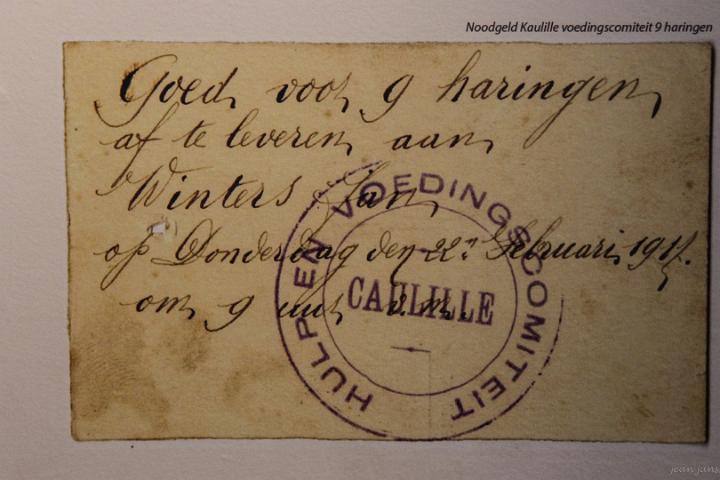 Noodgeld Kaulille voedingscomiteit 9 haringen
Goed voor 9 haringen
af te leveren aan
Winters Jan
op Donderdag den 22n Februari 1917.
om 9 uur v.m.
HULP EN VOEDINGS COMITEIT
CAULILLE
jean jans